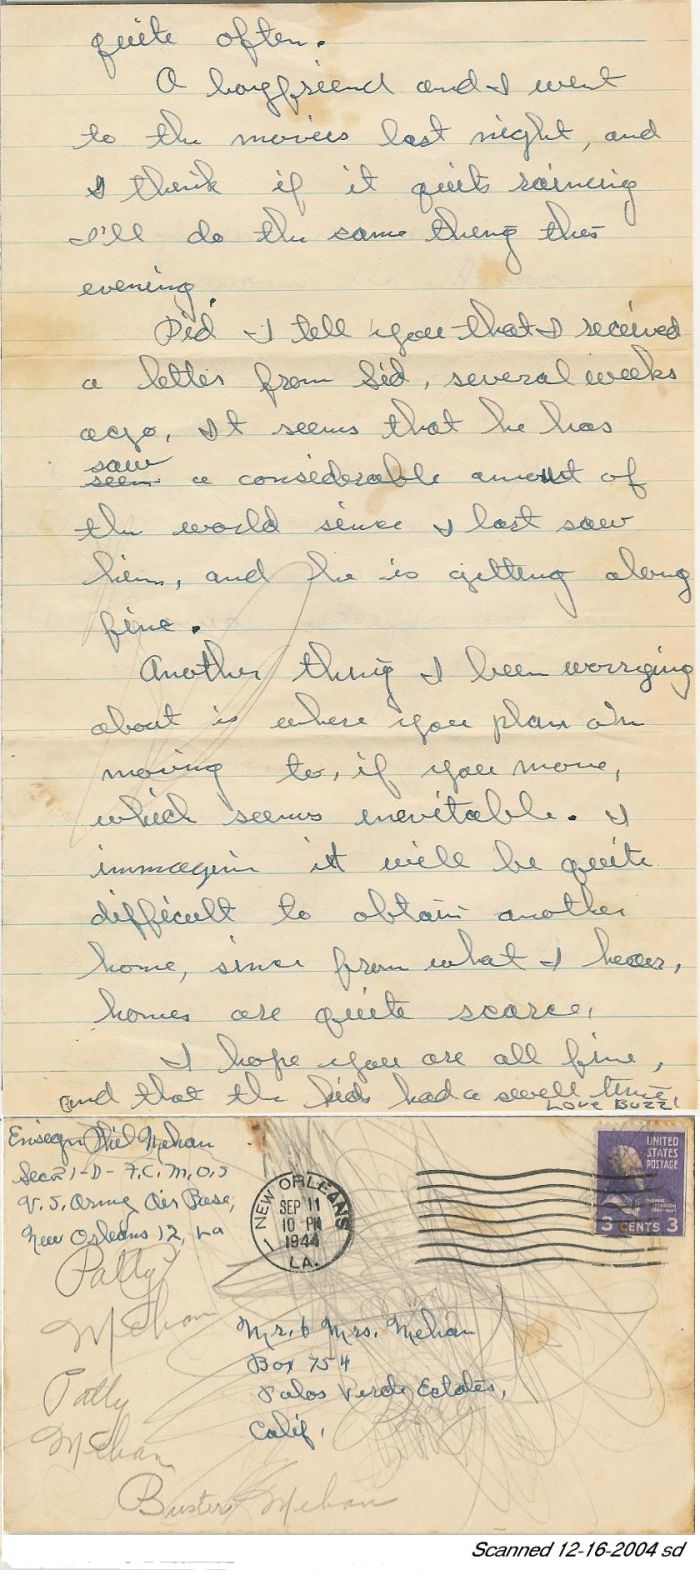 quite often.
A boyfriend and I went
to the movies last night, and
I think if it quits raining
I'll do the same thing this
evening.
Did I tell you that I received
a letter from Sid, several weeks
ago, It seems that he has
saw
seen a considerable amount of
the world since I last saw
him, and he is getting along
fine.
Another thing I been worrying
about is where you plan on
moving to, if you move,
which seems inevitable. I
immagin it will be quite
difficult to obtain another
home, since from what I hear,
homes are quite scarce,
I hope you are all fine,
and that the kids had a swell time
Love Buzz!
Ensign Phil Mehan
Sec 21-D- F.C.M.O.S
U.S. Army Air Base,
New Orleans 12, La
NEW ORLEANS
1
SEP 11
10 PM
1944
LA.
UNITED
STATES
POSTAGE
THOMAS
JEFFERSON
3 CENTS 3
Patty
Mehan
Mr. & Mrs. Mehan
Box 754
Palos Verde Estates,
Calif.
Patty
Mehan
Buster Mehan
Scanned 12-16-2004 sd